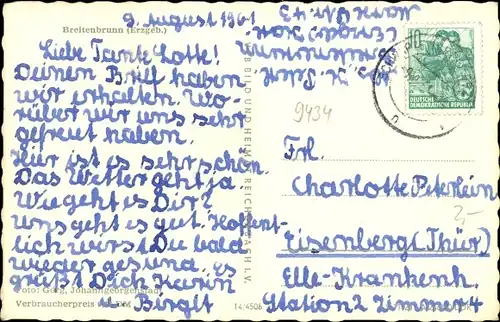 Breitenbrunn (Erzgeb.)
9. August 1961
Liebe Tante Lotte!
Deinen Brief haben
wir erhalten. Wo-
rüber wir uns sehr
gefreut haben.
Hier ist es sehr schön.
Das Wetter geht ja.
Wie geht es Dir?
Uns geht es gut. Hoffent-
lich wirst Du bald
wieder gesund. Es
grüßt Dich Karin
u. Birgit
Foto: Gerg, Johanngeorgenstadt
Verbraucherpreis DM
14/4506
BILD UND HEIMAT REICHENBACH I. V.
10
DEUTSCHE
DEMOKRATISCHE REPUBLIK
9434
Frl.
Charlotte Peterlein
Eisenberg (Thür)
Elle-Krankenh.
Station 2 Zimmer 4
2,-